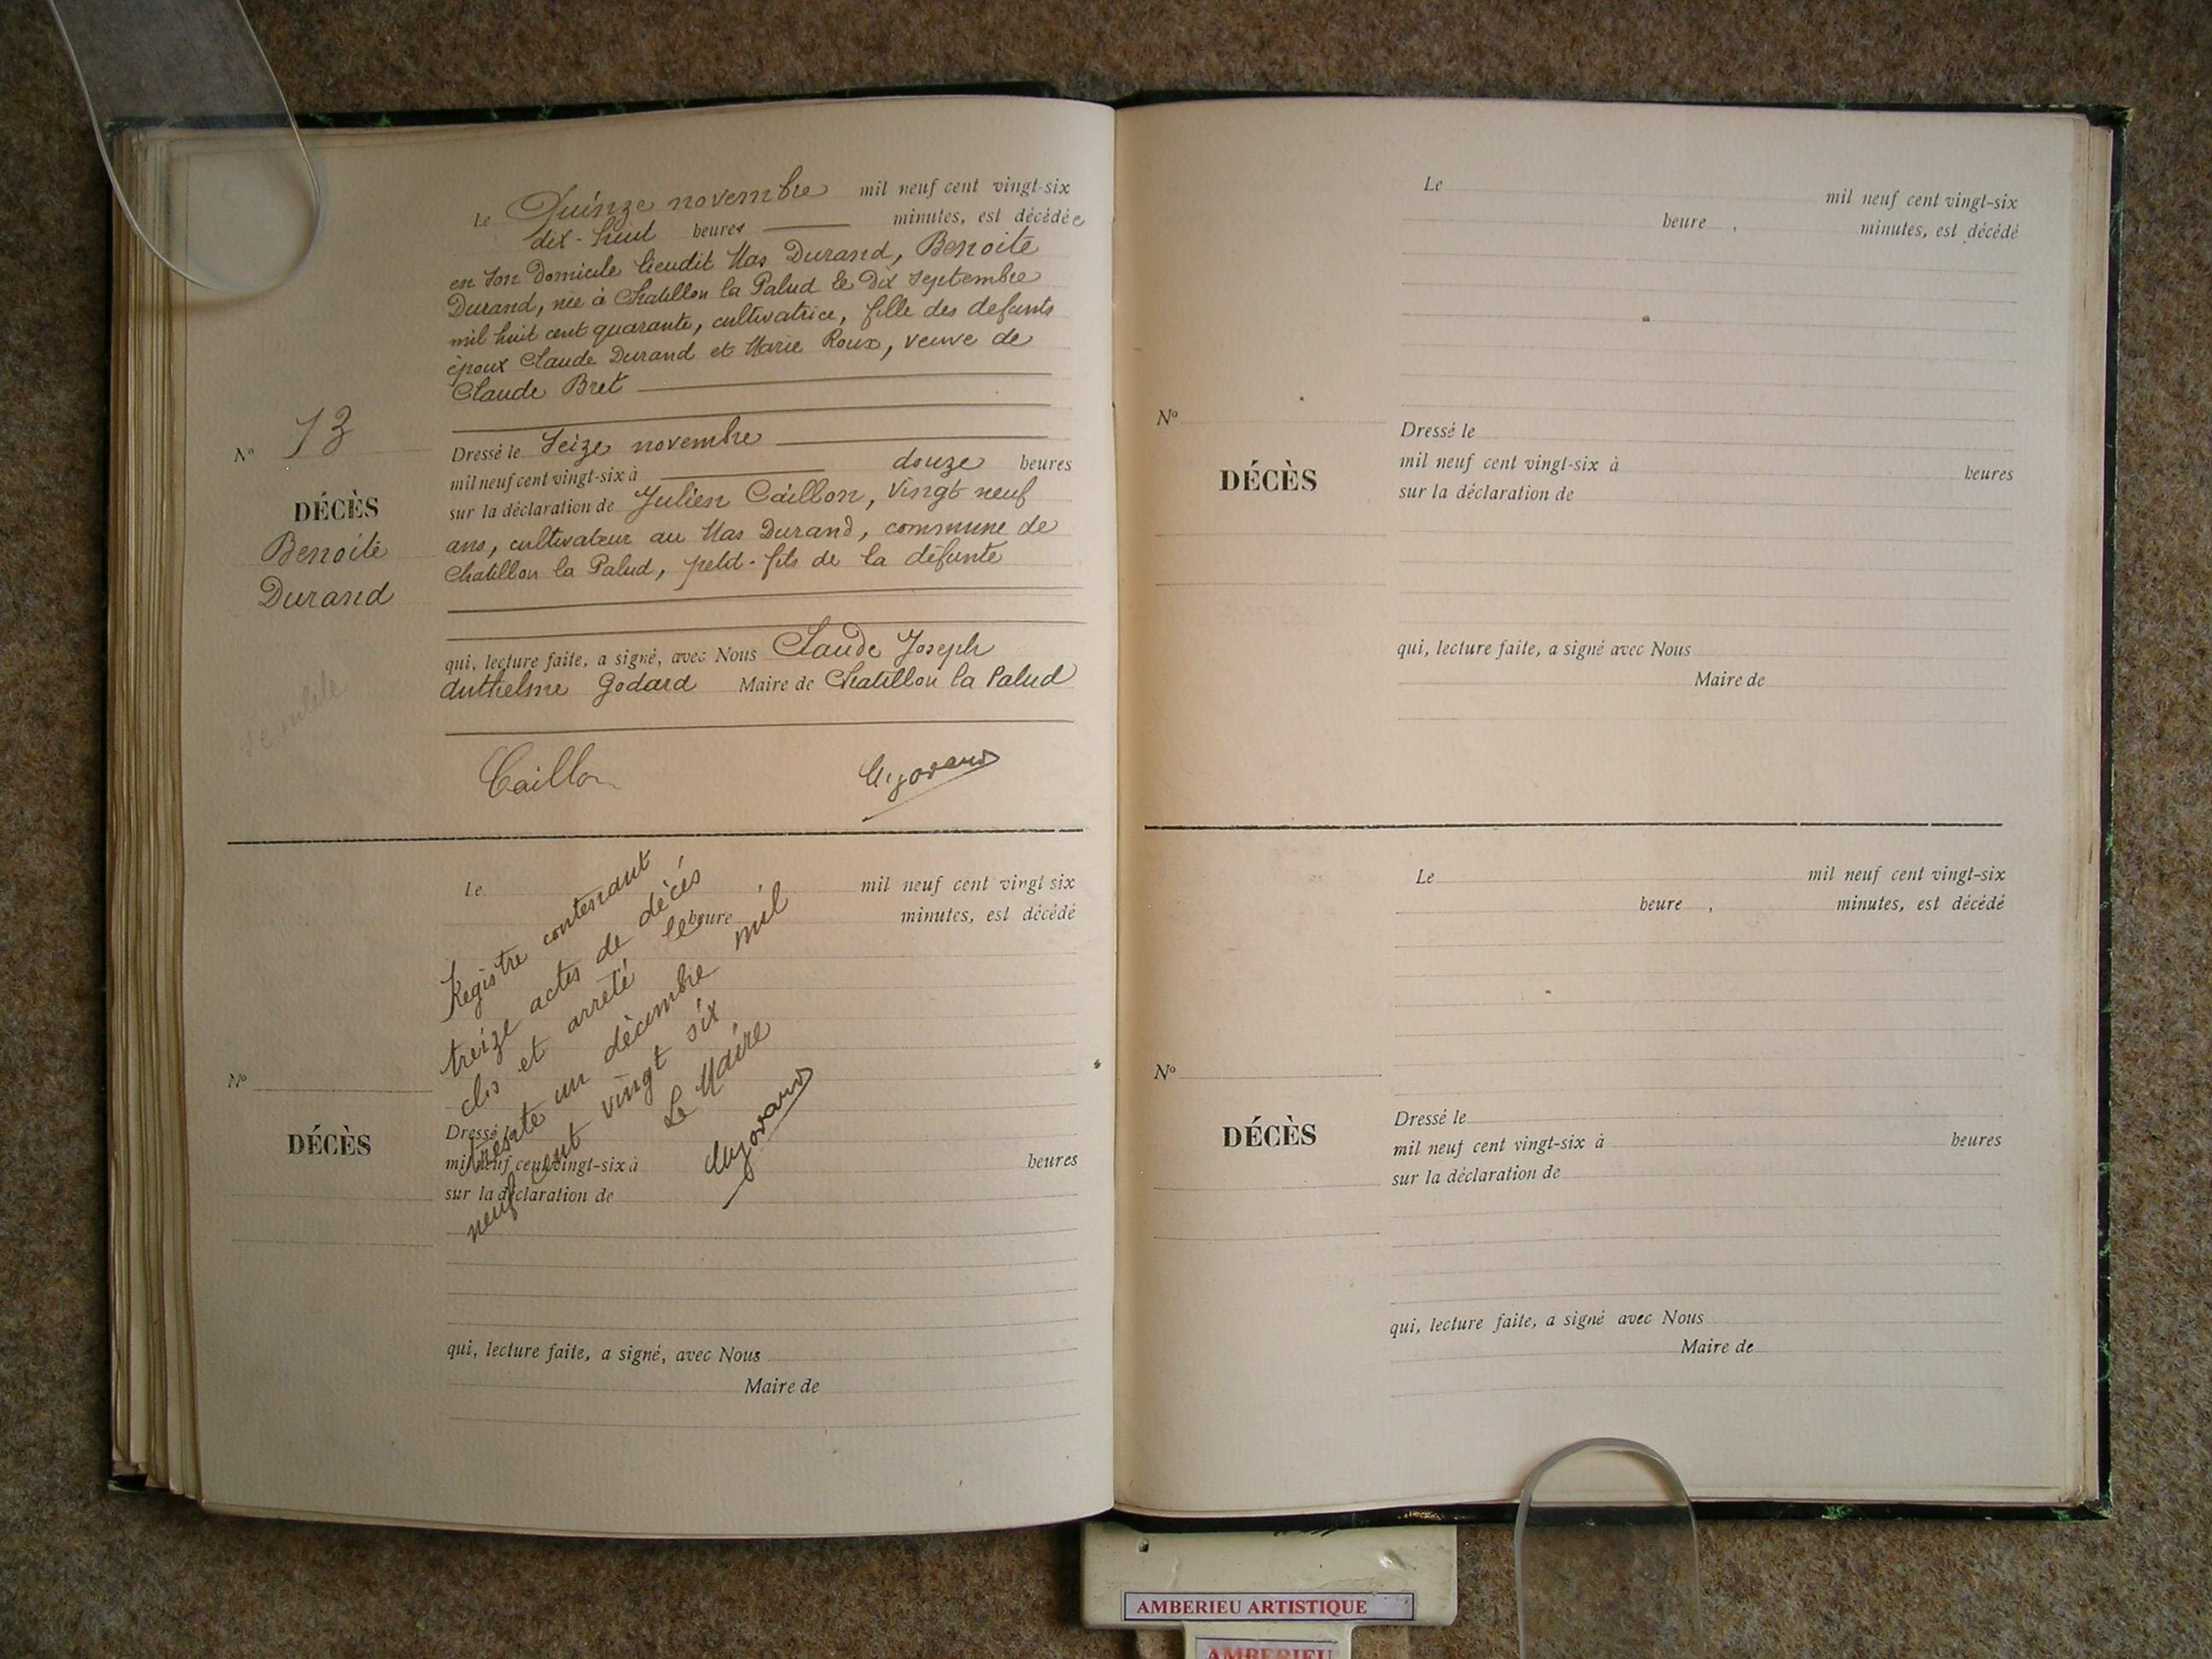 Le Quinze novembre mil neuf cent vingt-six
dix-huit heures minutes, est décédée
en son domicile lieudit Mas Durand, Benoite
Durand, née à Chatillon la Palud le Dix septembre
mil huit cent quarante, cultivatrice, fille des defunts
époux Claude Durand et Marie Roux, veuve de
Claude Bret
No 13
DÉCÈS
Benoite
Durand
Dressé le Seize novembre
mil neuf cent vingt-six à douze heures
sur la déclaration de Julien Caillon, vingt neuf
ans, cultivateur au Mas Durand, commune de
Chatillon la Palud, petit-fils de la défunte
qui, lecture faite, a signé, avec Nous Claude Joseph
Anthelme Godard Maire de Chatillon la Palud
Caillon
Le mil neuf cent vingt six
heure minutes, est décédé
Registre contenant
treize actes de décès
clos et arrêté le
trente un décembre mil
neuf cent vingt six
Le Maire
No
DÉCÈS
Dressé le
mil neuf cent vingt-six à heures
sur la déclaration de
qui, lecture faite, a signé, avec Nous
Maire de
Le mil neuf cent vingt-six
heure , minutes, est décédé
No
DÉCÈS
Dressé le
mil neuf cent vingt-six à heures
sur la déclaration de
qui, lecture faite, a signé avec Nous
Maire de
Le mil neuf cent vingt-six
heure , minutes, est décédé
No
DÉCÈS
Dressé le
mil neuf cent vingt-six à heures
sur la déclaration de
qui, lecture faite, a signé avec Nous
Maire de
AMBERIEU ARTISTIQUE
AMBERIEU